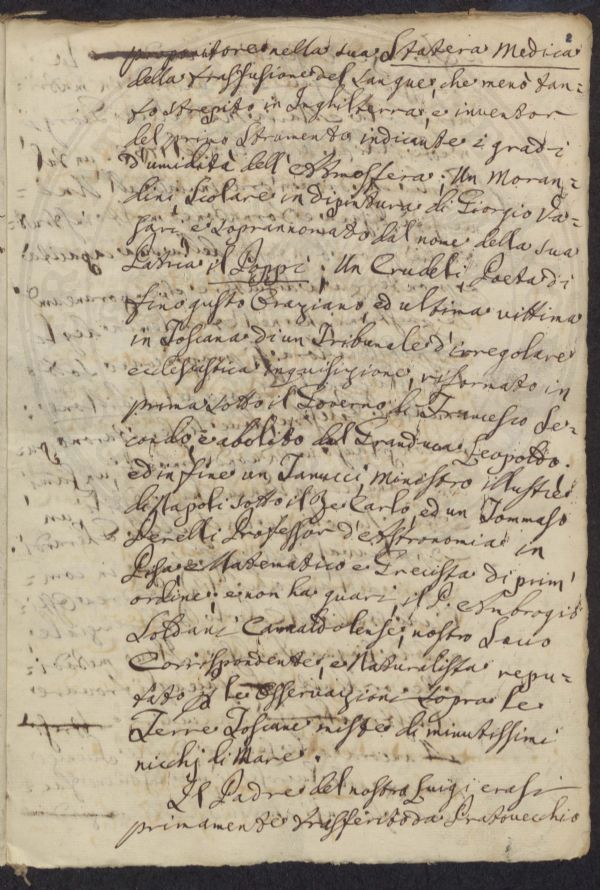 2
propositore nella sua Statera Medica
della trasfusione del sangue, che menò tan=
to strepito in Inghilterra, e inventor
del primo Strumento indicante i gradi
d'umidità dell'Atmosfera; Un Moran=
dini Scolare in dipintura di Giorgio Va=
sari e soprannomato dal nome della sua
Patria il Poppi; Un Crudeli Poeta di
fino gusto Oraziano, ed ultima vittima
in Toscana di un Tribunale d'irregolare
ecclesiastica inquisizione, riformato in
prima sotto il Governo di Francesco Se=
condo, e abolito dal Granduca Leopoldo.
ed in fine un Tanucci Ministro illustre
di Napoli sotto il Re Carlo, ed un Tommaso
Perelli Professor d'Astronomia in
Pisa e Matematico e Grecista di prim'
ordine; e non ha guari, il P. Ambrogio
Soldani Camaldolense, nostro Socio
Corrispondente, e Naturalista repu=
tato p le osservazioni sopra le
Terre Toscane miste di minutissimi
nicchj di Mare.
Il Padre del nostro Luigi erasi
primamente trasferito da Pratovecchio